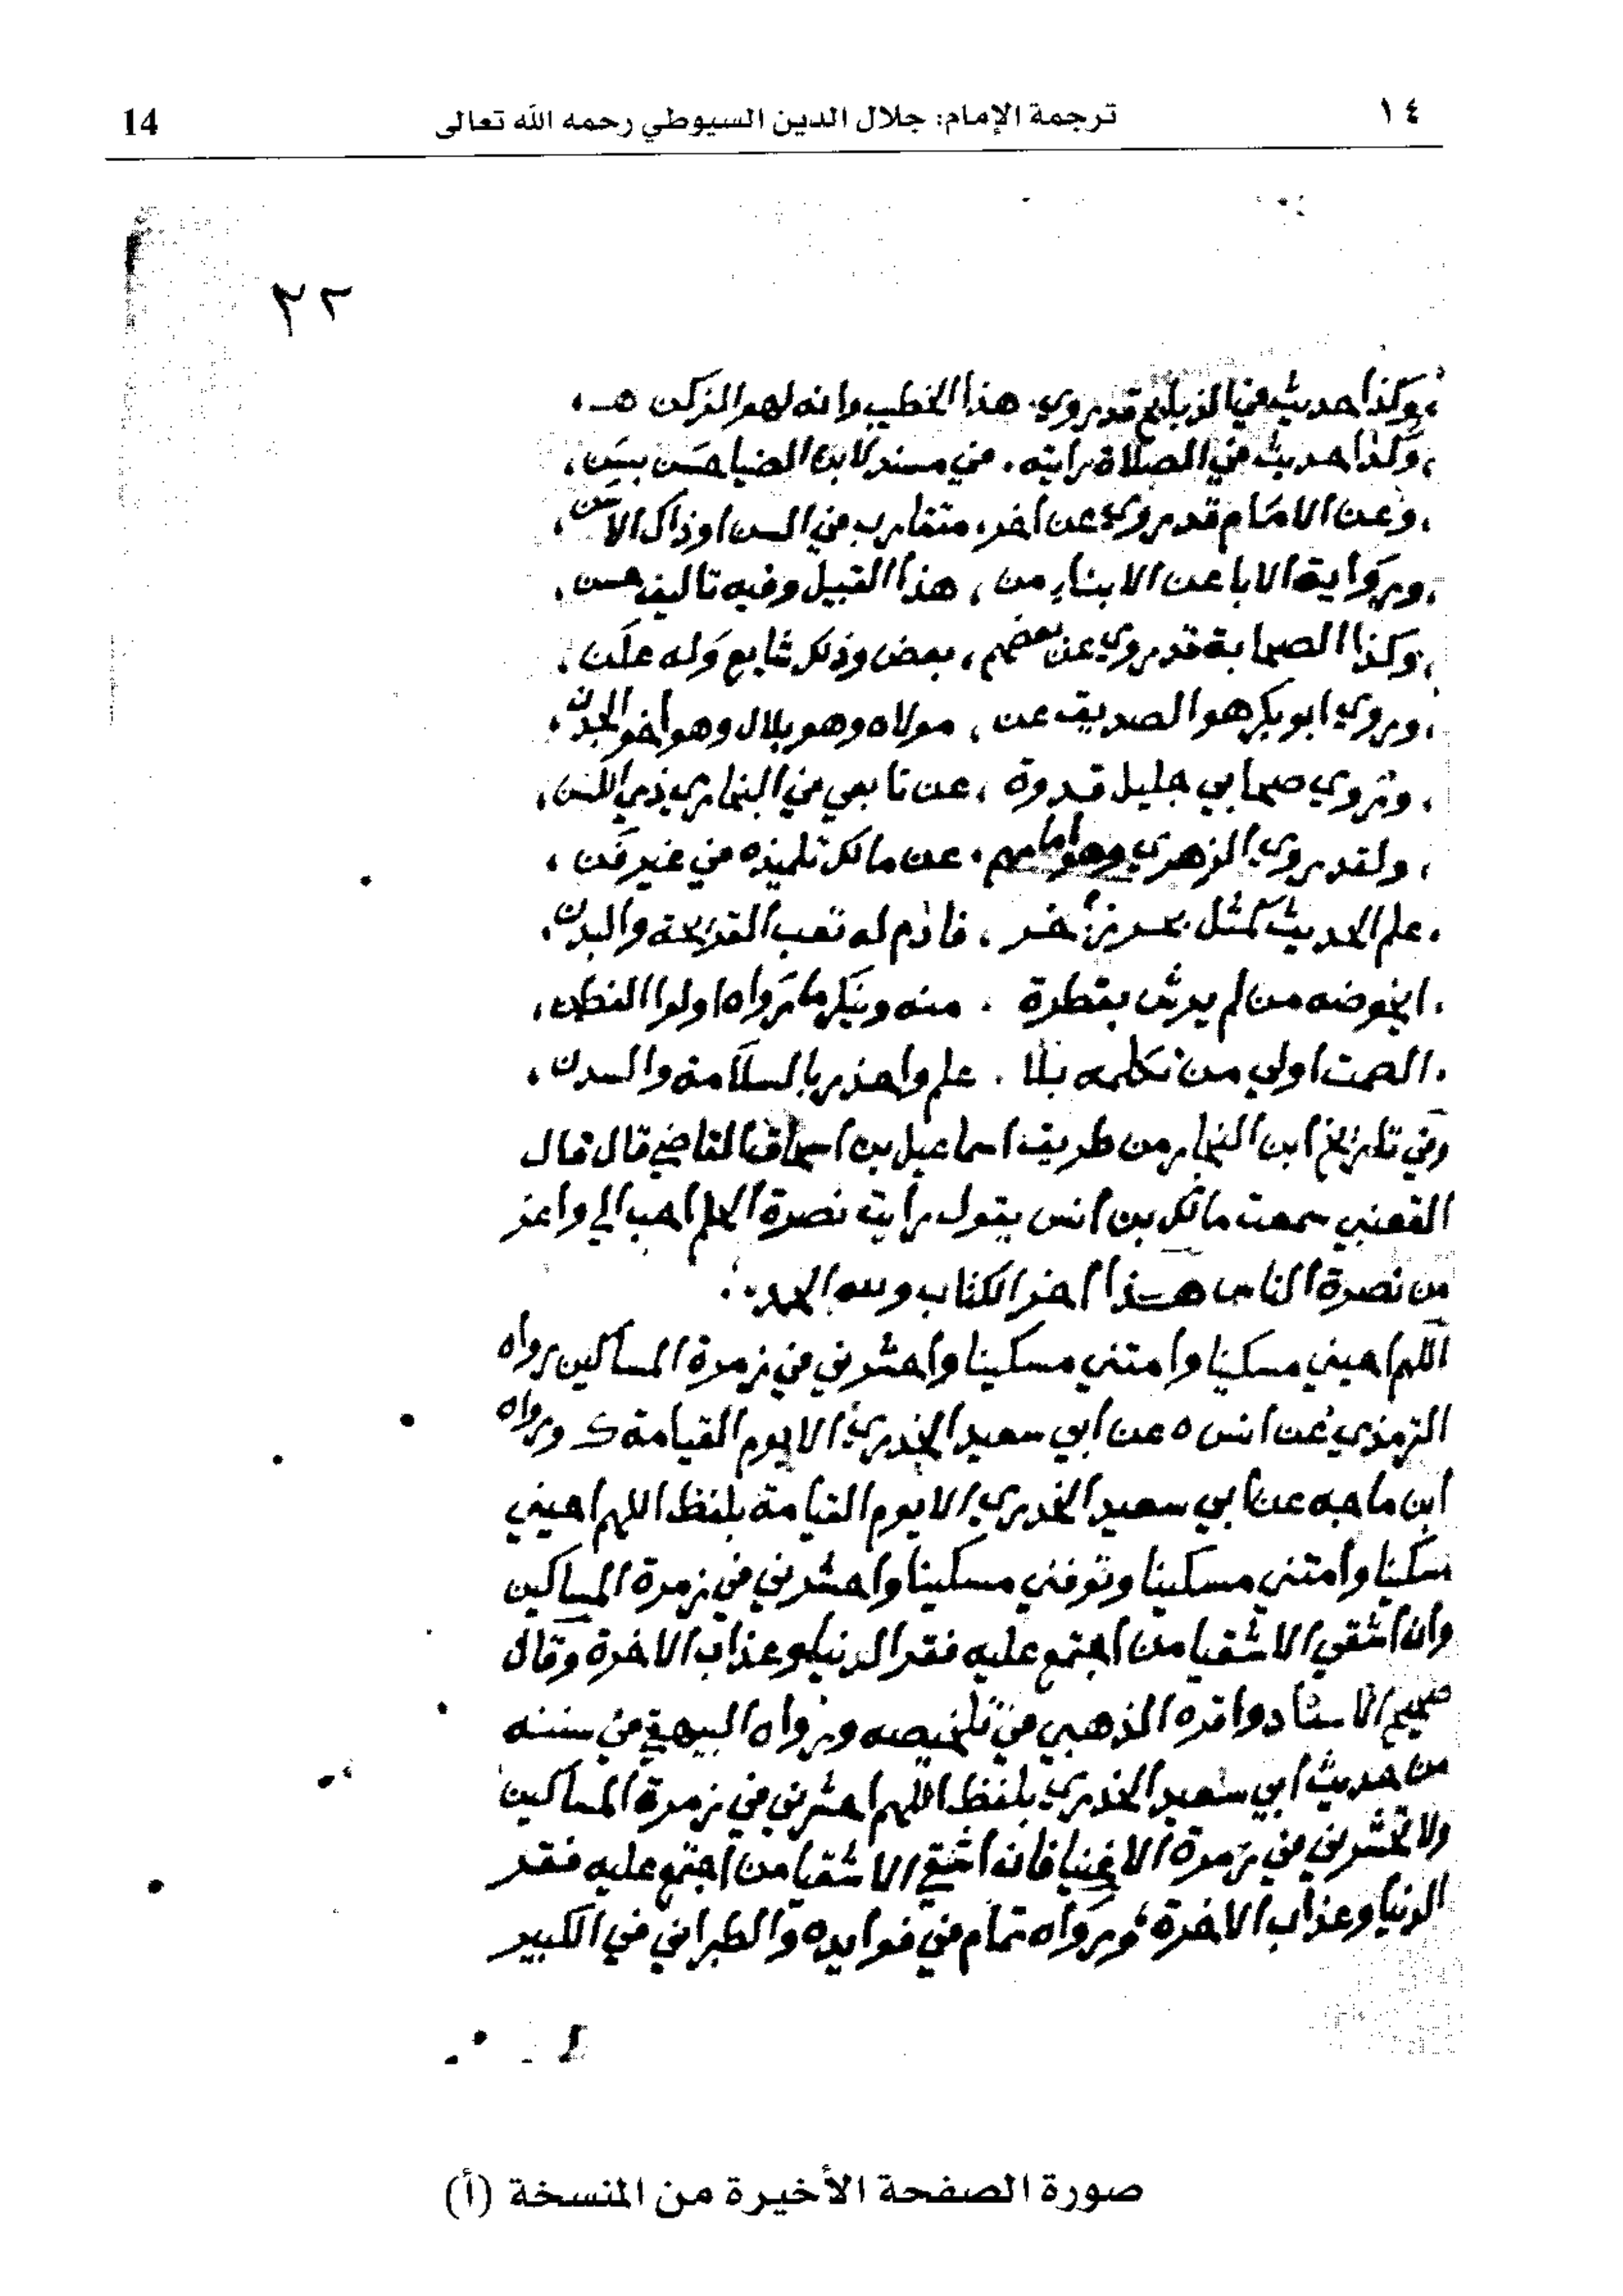 ١٤ ترجمة الإمام: جلال الدين السيوطي رحمه الله تعالى 14
٢٢
وكذا حديث في قد روي، هذا الخطيب وانه لهو الركن
وكذا حديث في الصلاة رايته، في مسند لابن الضيا حسن بسن،
وعن الامام قد روي عن اخر، متقارب في السن اوذاك الاسن،
ورواية الابا عن الابناء من، هذا القبيل وفيه تاليف حسن،
وكذا الصحابة قد روي عن بعضهم، بعض وذلك شايع وله علن،
وروي ابو بكر هو الصديق عن، مولاه وهو بلال وهو اخو
وروي صحابي جليل قدوة، عن تابعي في البخاري ذي اللسن،
ولقد روي الزهري وهو امامهم، عن مالك تلميذه في غير فن،
علم الحديث كمثل بحر زاخر، فادم له تعب القريحة والبدن،
ايخوضه من لم يرش بقطرة، منه وينكر ما رواه اولوا الفطن،
الصمت اولي من تكلمه بلا، علم واحذر بالسلامة والسدن،
وفي تاريخ ابن النجار من طريق اسماعيل بن اسحاق القاضي قال قال
القعنبي سمعت مالك بن انس يقول رايت نصرة العلم احب الي واعز
من نصرة الناس هذا اخر الكتاب ولله الحمد
اللهم احيني مسكينا وامتني مسكينا واحشرني في زمرة المساكين رواه
الترمذي عن انس ه عن ابي سعيد الخدري الا يوم القيامة ك ورواه
ابن ماجه عن ابي سعيد الخدري الا يوم القيامة بلفظ اللهم احيني
مسكينا وامتني مسكينا وتوفني مسكينا واحشرني في زمرة المساكين
وان اشقي الاشقيا من اجتمع عليه فقر الدنيا وعذاب الاخرة وقال
صحيح الاسناد واقره الذهبي في تلخيصه ورواه البيهقي في سننه
من حديث ابي سعيد الخدري بلفظ اللهم احشرني في زمرة المساكين
ولا تحشرني في زمرة الاغنيا فان اشقي الاشقيا من اجتمع عليه فقر
الدنيا وعذاب الاخرة ورواه تمام في فوايده والطبراني في الكبير
صورة الصفحة الأخيرة من المنسخة (أ)